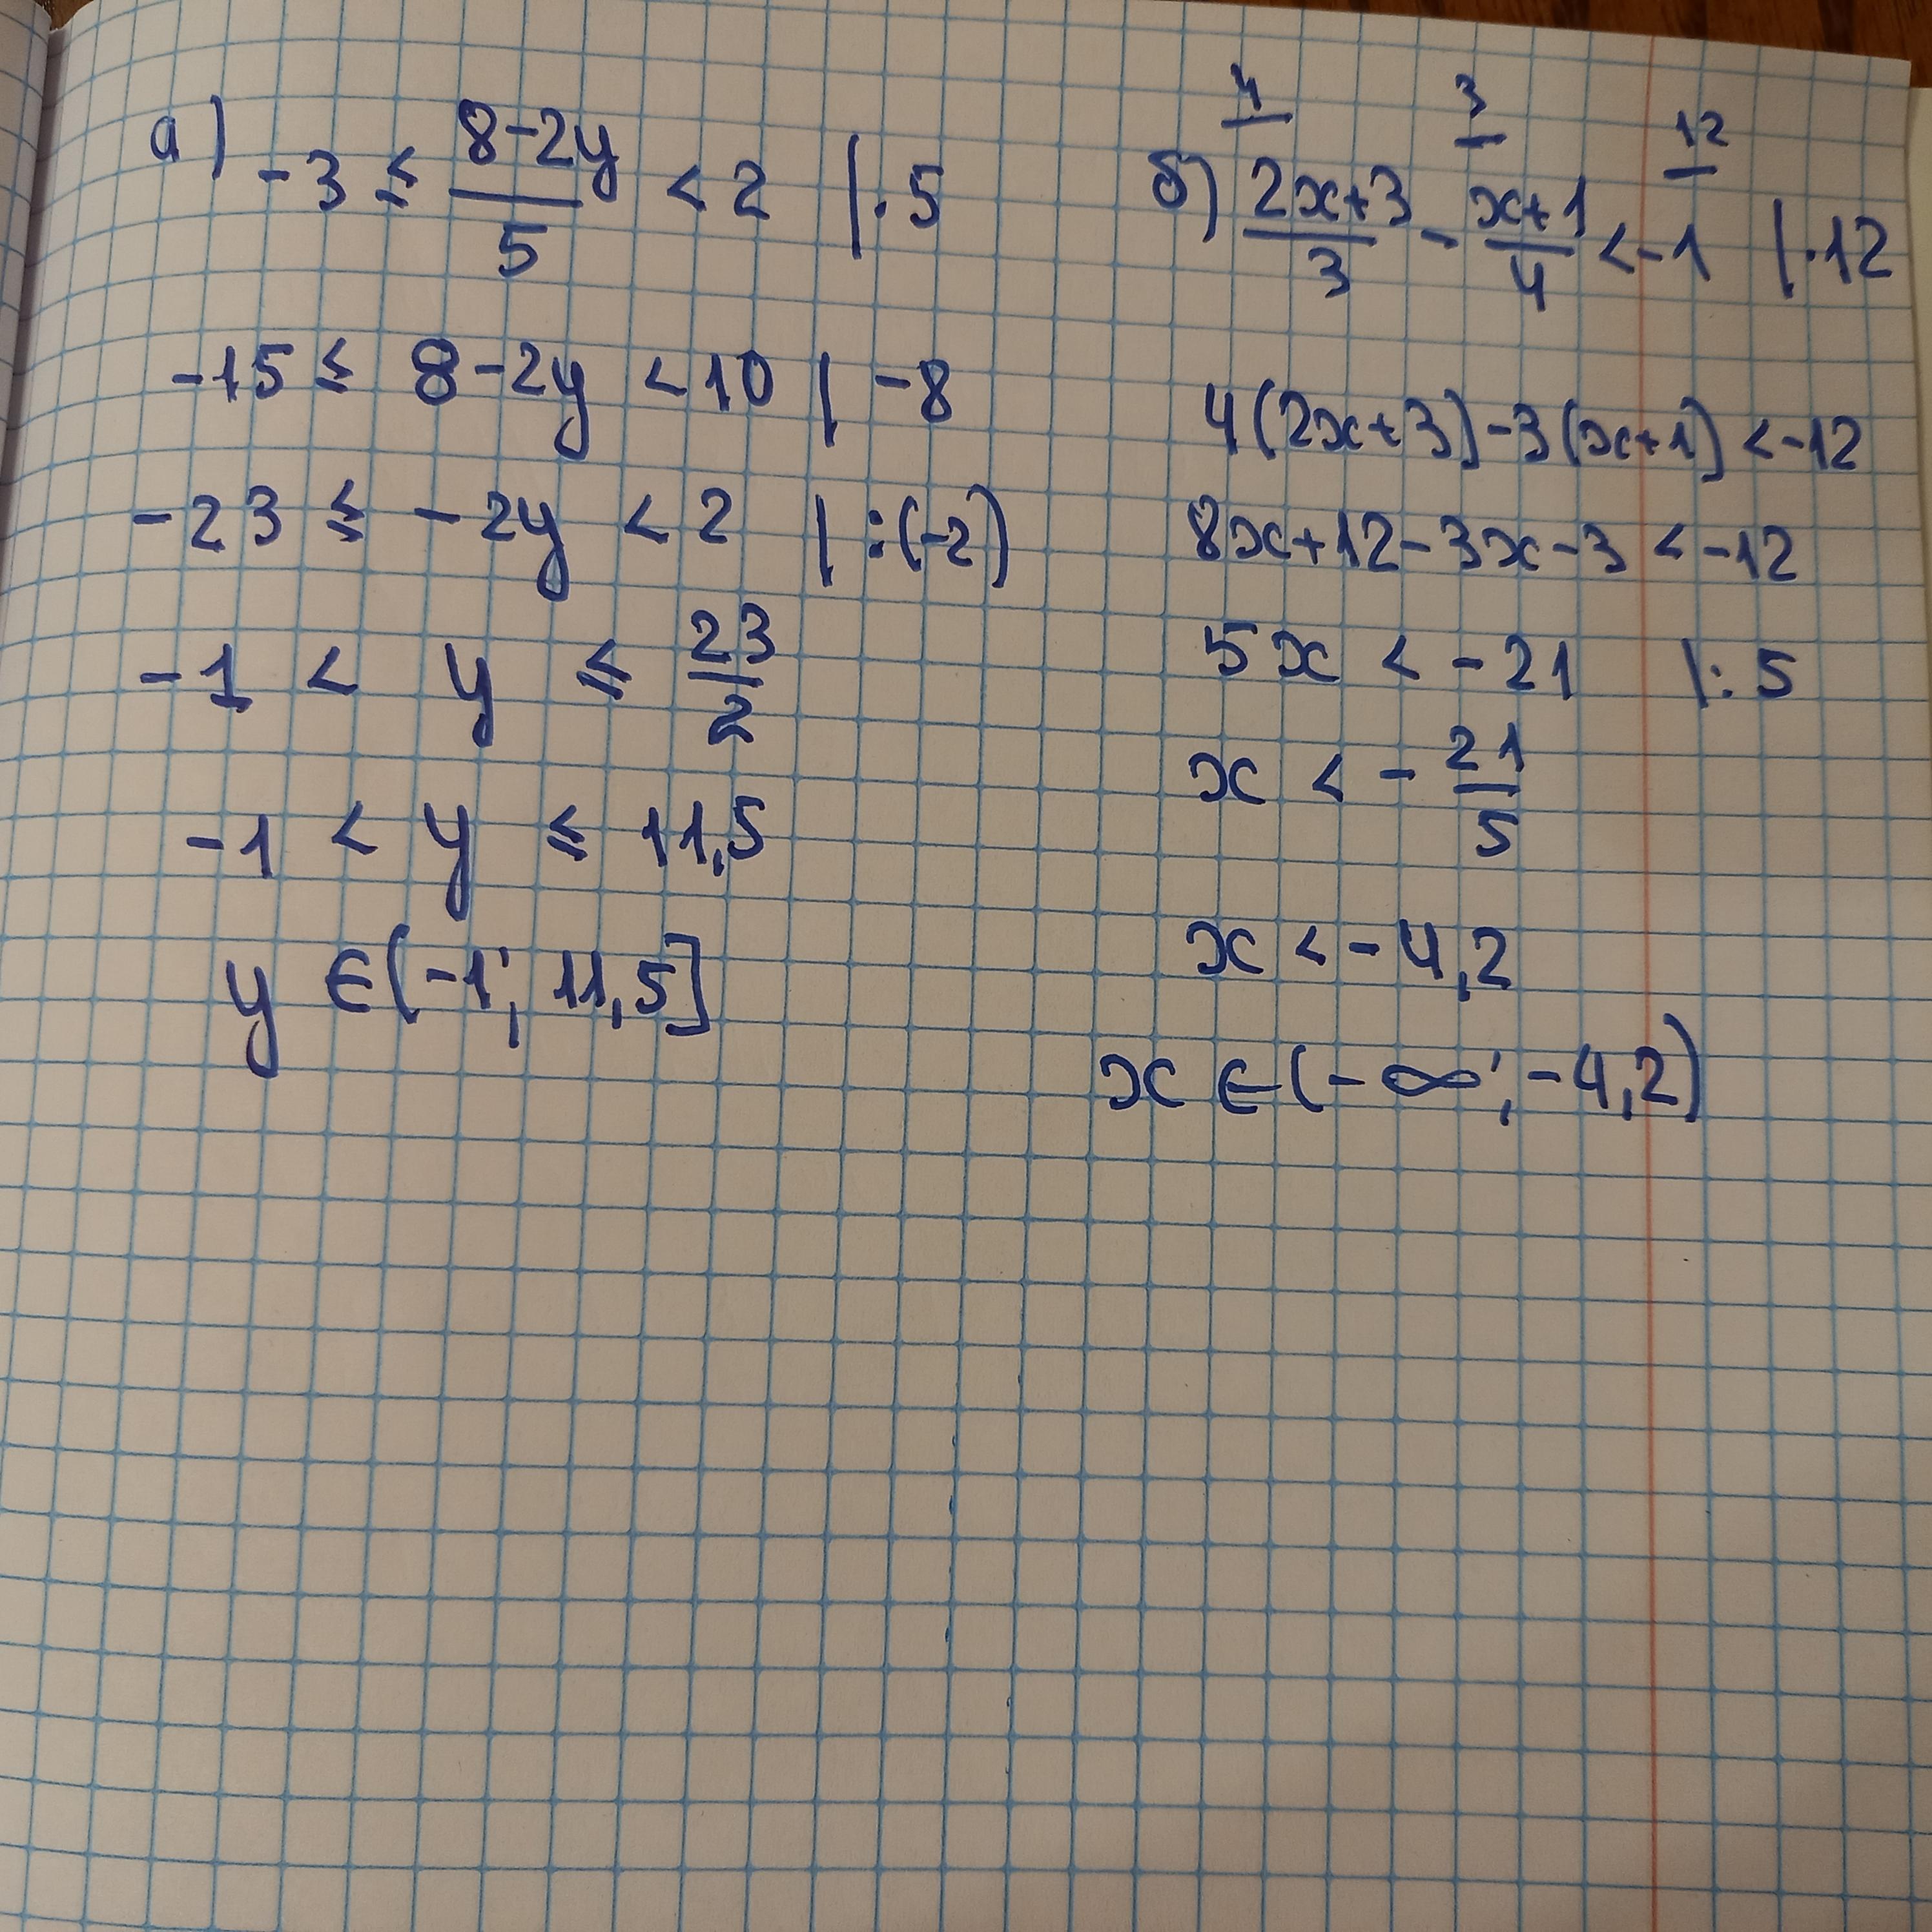 а) -3 ≤ (8-2y)/5 < 2 | · 5
-15 ≤ 8-2y < 10 | -8
-23 ≤ -2y < 2 | :(-2)
-1 < y ≤ 23/2
-1 < y ≤ 11,5
y ∈ (-1; 11,5]
4 3 12
б) (2x+3)/3 - (x+1)/4 < -1 | · 12
4(2x+3)-3(x+1) < -12
8x+12-3x-3 < -12
5x < -21 | : 5
x < - 21/5
x < -4,2
x ∈ (-∞; -4,2)